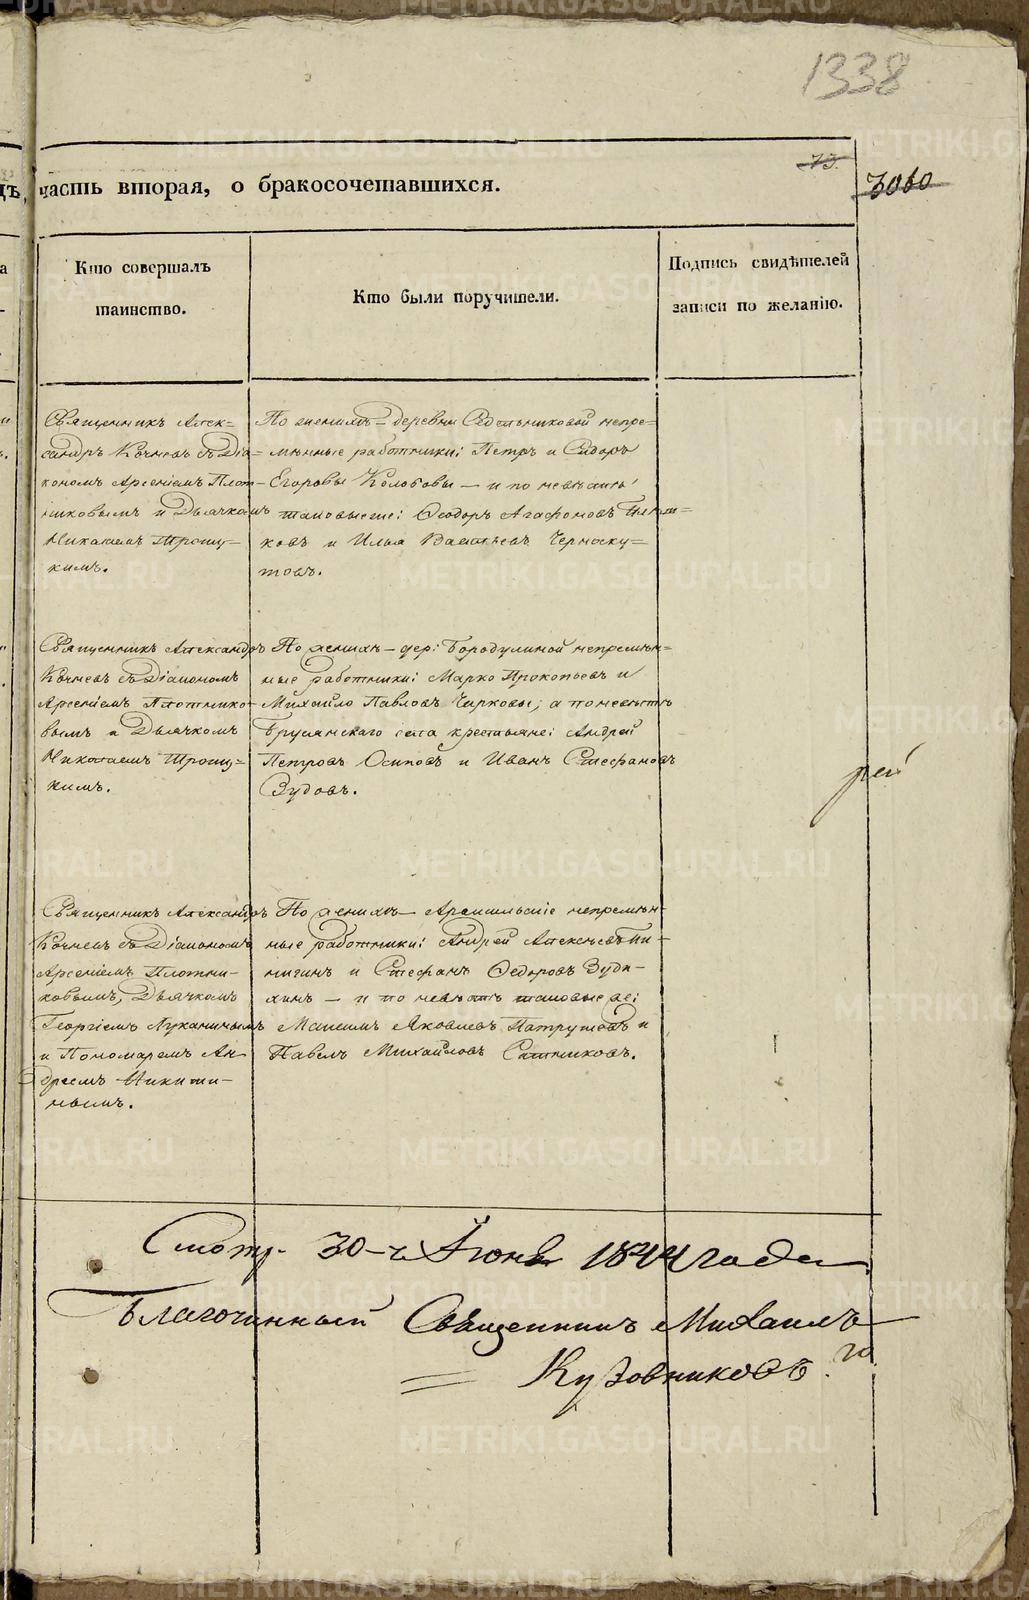 1338
73.
3060
часть вторая, о бракосочетавшихся.
Кто совершалъ
таинство.
Кто были поручители.
Подпись свидѣтелей
записи по желанію.
Священникъ Алек=
сандръ Кочневъ съ Діа=
кономъ Арсеніемъ Плот-
никовымъ и Дьячкомъ
Николаемъ
кимъ.
По женихѣ – деревни непре=
мѣнные работники: Петръ и Сидоръ
Егоровы Колобовы – и по невѣстѣ
таковые же: Ѳеодоръ Агафоновъ
ковъ и Илья Васильевъ Черноску=
товъ.
Священникъ Александръ
Кочневъ съ Діакономъ
Арсеніемъ Плотнико-
вымъ и Дьячкомъ
Николаемъ
кимъ.
По женихѣ – дер: Бородулиной непремѣн=
ные работники: Марко Прокопьевъ и
Михайло Павловъ Чирковы; а по невѣстѣ
Бруснянскаго села крестьяне: Андрей
Петровъ Осиповъ и Иванъ Стефановъ
Зудовъ.
Священникъ Александръ
Кочневъ съ Діакономъ
Арсеніемъ Плотни-
ковымъ, Дьячкомъ
Георгіемъ Луканинымъ
и Пономаремъ Ан-
дреемъ Никити-
нымъ.
По женихѣ – Арамильскіе непремѣн-
ные работники: Андрей Алексѣевъ
и Стефанъ Ѳедоровъ
– и по невѣстѣ таковые же:
Максимъ Яковлевъ Патрушевъ и
Павелъ Михайловъ Ситниковъ.
рей
Смотр. 30-го Іюня 1844 года
Благочинный Священникъ Михаилъ
Кузовниковъ.
METRIKI.GASO-URAL.RU